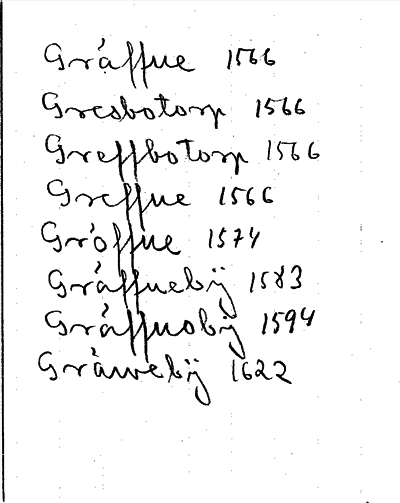 Gråffue 1566
Gresbotorp 1566
Greffbotorp 1566
Greffue 1566
Gröffue 1574
Gråffuebÿ 1583
Gråffuobÿ 1594
Gråwebÿ 1622